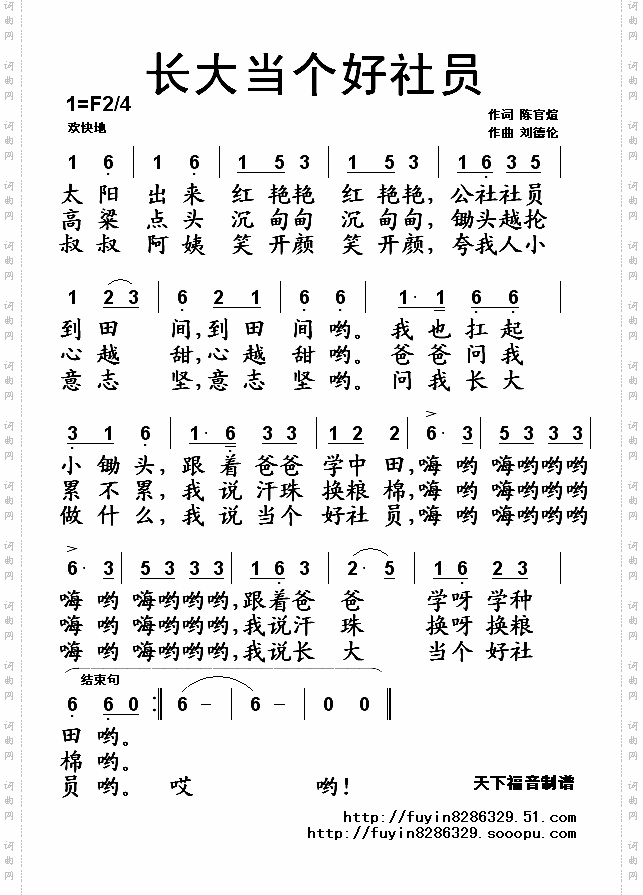 长大当个好社员
1=F2/4
欢快地
作词 陈官煊
作曲 刘德伦
1 6 | 1 6 | 1 5 3 | 1 5 3 | 1 6 3 5 |
太 阳 出 来 红 艳艳 红 艳艳, 公社社员
高 粱 点 头 沉 甸甸 沉 甸甸, 锄头越抡
叔 叔 阿 姨 笑 开颜 笑 开颜, 夸我人小
1 2 3 | 6 2 1 | 6 6 | 1· 1 6 6 |
到 田 间, 到 田 间 哟。 我 也 扛 起
心 越 甜, 心 越 甜 哟。 爸 爸 问 我
意 志 坚, 意 志 坚 哟。 问 我 长 大
3 1 6 | 1· 6 3 3 | 1 2 2 | 6· 3 | 5 3 3 3 |
小 锄 头, 跟 着 爸 爸 学 中 田, 嗨 哟 嗨哟哟哟
累 不 累, 我 说 汗 珠 换 粮 棉, 嗨 哟 嗨哟哟哟
做 什 么, 我 说 当 个 好 社 员, 嗨 哟 嗨哟哟哟
6· 3 | 5 3 3 3 | 1 6 3 | 2· 5 | 1 6 2 3 |
嗨 哟 嗨哟哟哟, 跟着爸 爸 学呀 学种
嗨 哟 嗨哟哟哟, 我说汗 珠 换呀 换粮
嗨 哟 嗨哟哟哟, 我说长 大 当个 好社
结束句
6 6 0 :‖ 6 - | 6 - | 0 0 ‖
田 哟。
棉 哟。
员 哟。 哎 哟!
天下福音制谱
http://fuyin8286329.51.com/
http://fuyin8286329.sooopu.com
词曲网